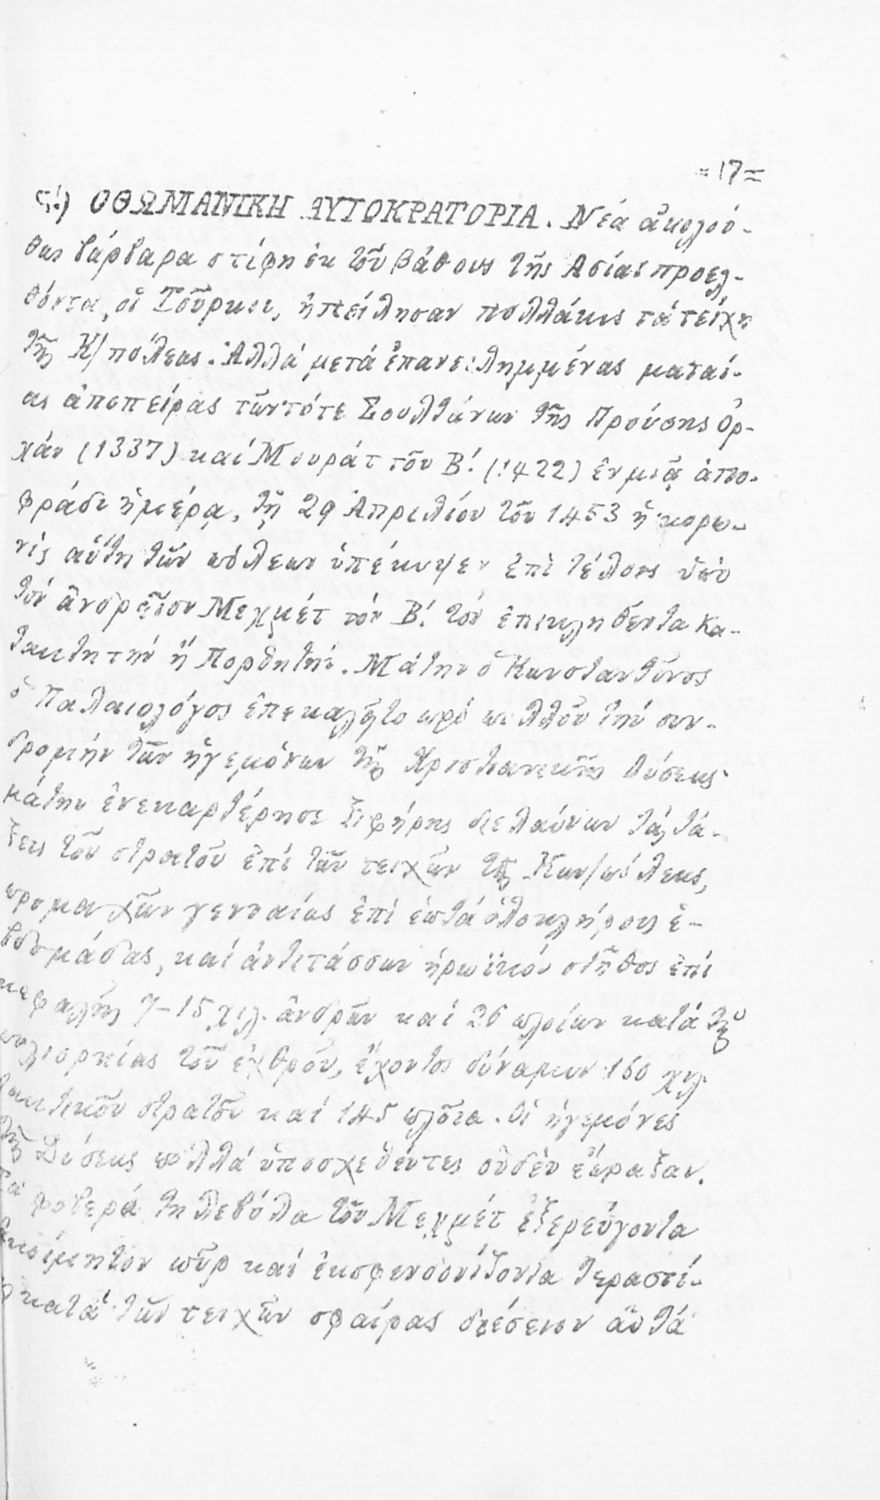 =17=
ς!) ΟΘΩΜΑΝΙΚΗ ΑΥΤΟΚΡΑΤΟΡΙΑ. Νέα ἀκολού-
θως βάρβαρα στίφη ἐκ τοῦ βάθους τῆς Ἀσίας προελ-
θόντα, οἱ Τοῦρκοι, ἠπείλησαν πολλάκις τά τείχη
τῆς Κ/πόλεως. Ἀλλά μετά ἐπανειλημμένας ματαί-
ας ἀποπείρας τῶν τότε Σουλτάνων τῆς Προύσης Ὀρ-
χάν (1337) καί Μουράτ τοῦ Β! (1422) ἐν μιᾷ ἀπο-
φράδι ἡμέρᾳ, τῇ 29 Ἀπριλίου τοῦ 1453 ἡ κορω-
νίς αὕτη τῶν πόλεων ὑπέκυψεν ἐπί τέλους ὑπό
τόν ἀνδρεῖον Μεχμέτ τόν Β! τόν ἐπικληθέντα Κα-
τακτητήν ἤ Πορθητήν. Μάτην ὁ Κωνσταντῖνος
ὁ Παλαιολόγος ἐπεκαλεῖτο πρό πολλοῦ τήν συν-
δρομήν τῶν ἡγεμόνων τῆς Χριστιανικῆς Δύσεως·
μάτην ἐνεκαρτέρησε ξιφήρης διελαύνων τάς τά-
ξεις τοῦ στρατοῦ ἐπί τῶν τειχῶν τῆς Κων/πόλεως,
προμαχῶν γενναίως ἐπί ἑπτά ὁλοκλήρους ἑ-
βδομάδας, καί ἀντιτάσσων ἡρωϊκόν στῆθος ἐπί
κεφαλῆς 7-15 χιλ. ἀνδρῶν καί 26 πλοίων κατά τῆς
πολιορκίας τοῦ ἐχθροῦ, ἔχοντος δύναμιν 160 χιλ.
τακτικοῦ στρατοῦ καί 145 πλοῖα. Οἱ ἡγεμόνες
τῆς Δύσεως πολλά ὑποσχεθέντες οὐδέν ἔπραξαν.
Τά φοβερά τηλεβόλα τοῦ Μεχμέτ ἐξερεύγοντα
ἀκοίμητον πῦρ καί ἐκσφενδονίζοντα τεραστί-
κατά τῶν τειχῶν σφαίρας διέσειον αὐτά